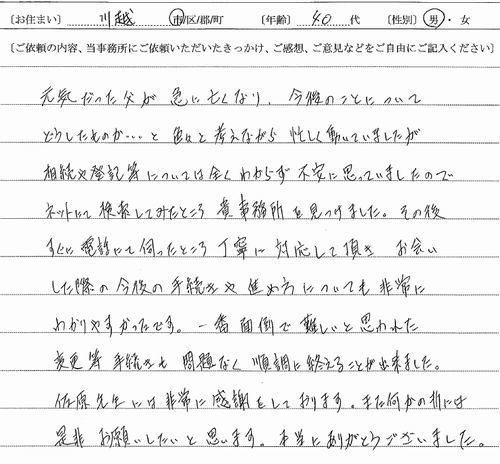 [お住まい] 川越 市/区/郡/町 [年齢] 40 代 [性別] 男・女
[ご依頼の内容、当事務所にご依頼いただいたきっかけ、ご感想、ご意見などをご自由にご記入ください]
元気だった父が 急に亡くなり、今後のことについて
どうしたものか…と 色々と 考えながら 忙しく働いていましたが
相続や登記等については全くわからず 不安に思っていましたので
ネットにて 検索してみたところ 貴事務所を見つけました。その後
すぐに 電話にて 伺ったところ 丁寧に 対応して頂き お会い
した際の 今後の 手続きや 進め方についても 非常に
わかりやすかったです。一番面倒で 難しいと 思われた
変更等 手続きも 問題なく 順調に 終えることが出来ました。
佐原先生には 非常に 感謝をしております。また何かの折には
是非 お願いしたいと 思います。本当にありがとうございました。